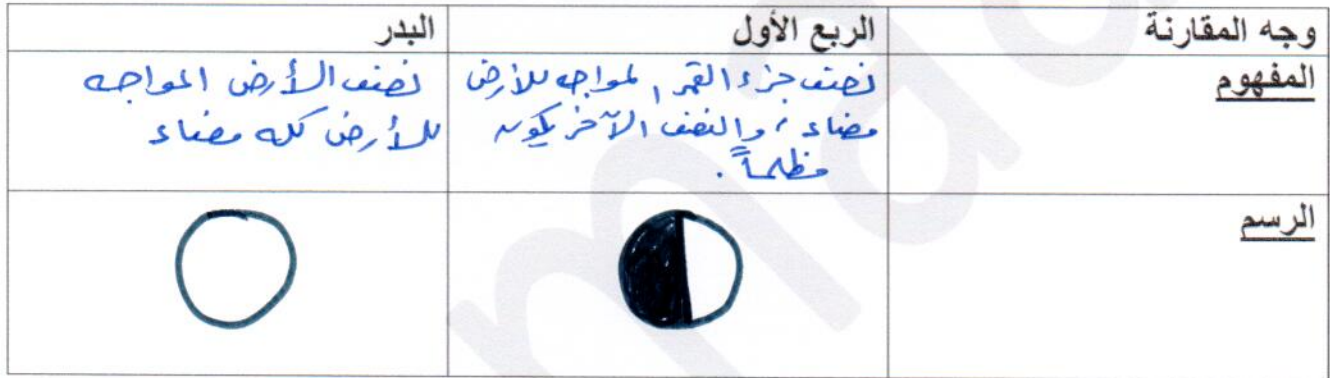 وجه المقارنة الربع الأول البدر
المفهوم
نصف جزء القمر المواجه للأرض
مضاء، والنصف الآخر يكون
مظلماً.
نصف الأرض المواجه
للأرض كله مضاء
الرسم